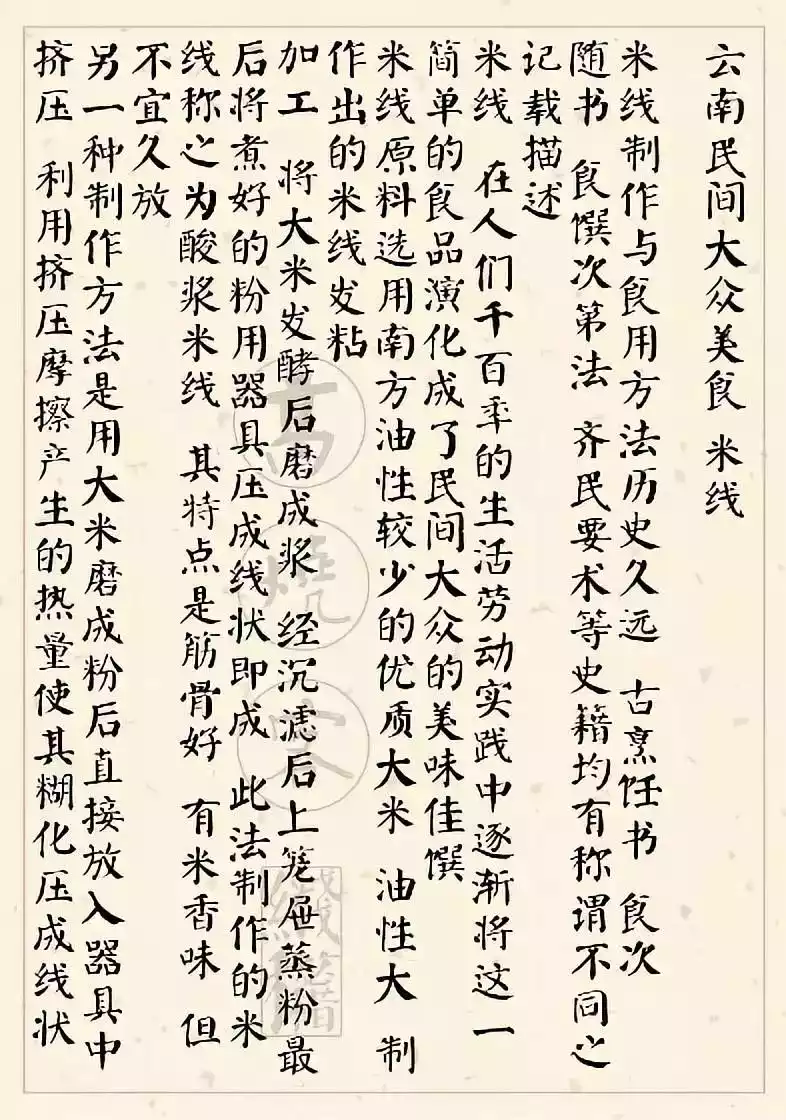 云南民间大众美食 米线
米线制作与食用方法历史久远 古烹饪书 食次
随书 食馔次第法 齐民要术等史籍均有称谓不同之
记载描述
米线 在人们千百年的生活劳动实践中逐渐将这一
简单的食品演化成了民间大众的美味佳馔
米线原料选用南方油性较少的优质大米 油性大 制
作出的米线发粘
加工 将大米发酵后磨成浆 经沉滤后上笼屉蒸粉最
后将煮好的粉用器具压成线状即成 此法制作的米
线称之为酸浆米线 其特点是筋骨好 有米香味 但
不宜久放
另一种制作方法是用大米磨成粉后直接放入器具中
挤压 利用挤压摩擦产生的热量使其糊化压成线状